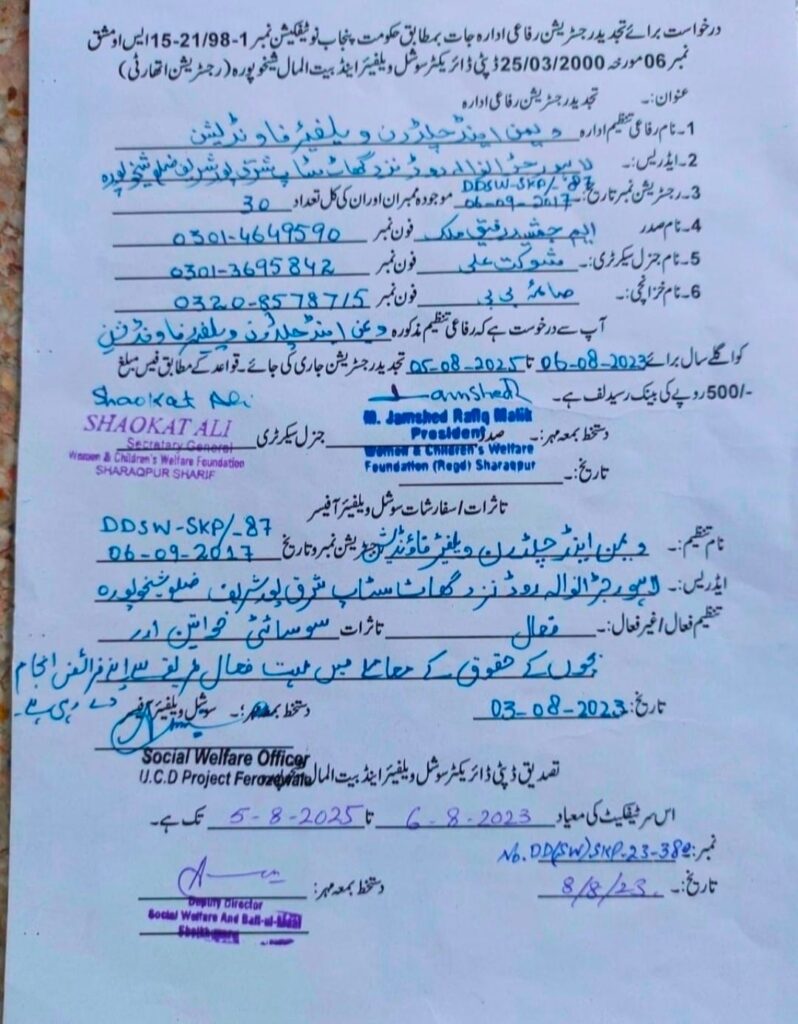 درخواست برائے تجدید رجسٹریشن رفاعی ادارہ جات بمطابق حکومت پنجاب نوٹیفکیشن نمبر 1-98/21-15 ایس او مشق
نمبر 06 مورخہ 25/03/2000 ڈپٹی ڈائریکٹر سوشل ویلفیئر اینڈ بیت المال شیخوپورہ (رجسٹریشن اتھارٹی)
عنوان:۔ تجدید رجسٹریشن رفاعی ادارہ
1۔ نام رفاعی تنظیم ادارہ ویمن اینڈ چلڈرن ویلفیئر فاونڈیشن
2۔ ایڈریس:۔ لاہور جڑانوالہ روڈ نزد گھاٹ سٹاپ شرق پور شریف ضلع شیخوپورہ
3۔ رجسٹریشن نمبر تاریخ:۔ DDSW-SKP/-87 06-09-2017 موجودہ ممبران اور ان کی کل تعداد 30
4۔ نام صدر ایم جمشید رفیق ملک فون نمبر 0301-4649590
5۔ نام جنرل سیکرٹری:۔ شوکت علی فون نمبر 0301-3695842
6۔ نام خزانچی:۔ صائمہ بی بی فون نمبر 0320-8578715
آپ سے درخوست ہے کہ رفاعی تنظیم مذکورہ ویمن اینڈ چلڈرن ویلفیئر فاونڈیشن
کو اگلے سال برائے 06-08-2023 تا 05-08-2025 تجدید رجسٹریشن جاری کی جائے۔ قواعد کے مطابق فیس مبلغ
500/- روپے کی بینک رسید لف ہے۔
Jamshed
Shaokat Ali
دستخط بمعہ مہر:۔ صدر جنرل سیکرٹری
M. Jamshed Rafiq Malik
President
Women & Children's Welfare
Foundation (Regd) Sharaqpur
SHAOKAT ALI
Secretary General
Women & Children's Welfare Foundation
SHARAQPUR SHARIF
تاریخ:۔
تاثرات/سفارشات سوشل ویلفیئر آفیسر
نام تنظیم:۔ ویمن اینڈ چلڈرن ویلفیئر فاؤنڈیشن رجسٹریشن نمبر و تاریخ DDSW-SKP/-87 06-09-2017
ایڈریس:۔ لاہور جڑانوالہ روڈ نزد گھاٹ سٹاپ شرق پور شریف ضلع شیخوپورہ
تنظیم فعال/غیر فعال:۔ فعال تاثرات سوسائٹی خواتین اور
بچوں کے حقوق کے معاملے میں بہت فعال طریقے سے اپنے فرائض انجام
دے رہی ہے۔
تاریخ: 03-08-2023 دستخط بمعہ مہر:۔ سوشل ویلفیئر آفیسر
Social Welfare Officer
U.C.D Project Ferozewala
تصدیق ڈپٹی ڈائریکٹر سوشل ویلفیئر اینڈ بیت المال
اس سرٹیفکیٹ کی معیاد 6-8-2023 تا 5-8-2025 تک ہے۔
نمبر: No. DD(SW)SKP-23-382
تاریخ:۔ 8/8/23. دستخط بمعہ مہر:
Deputy Director
Social Welfare And Bait-ul-Maal
Sheikhupura